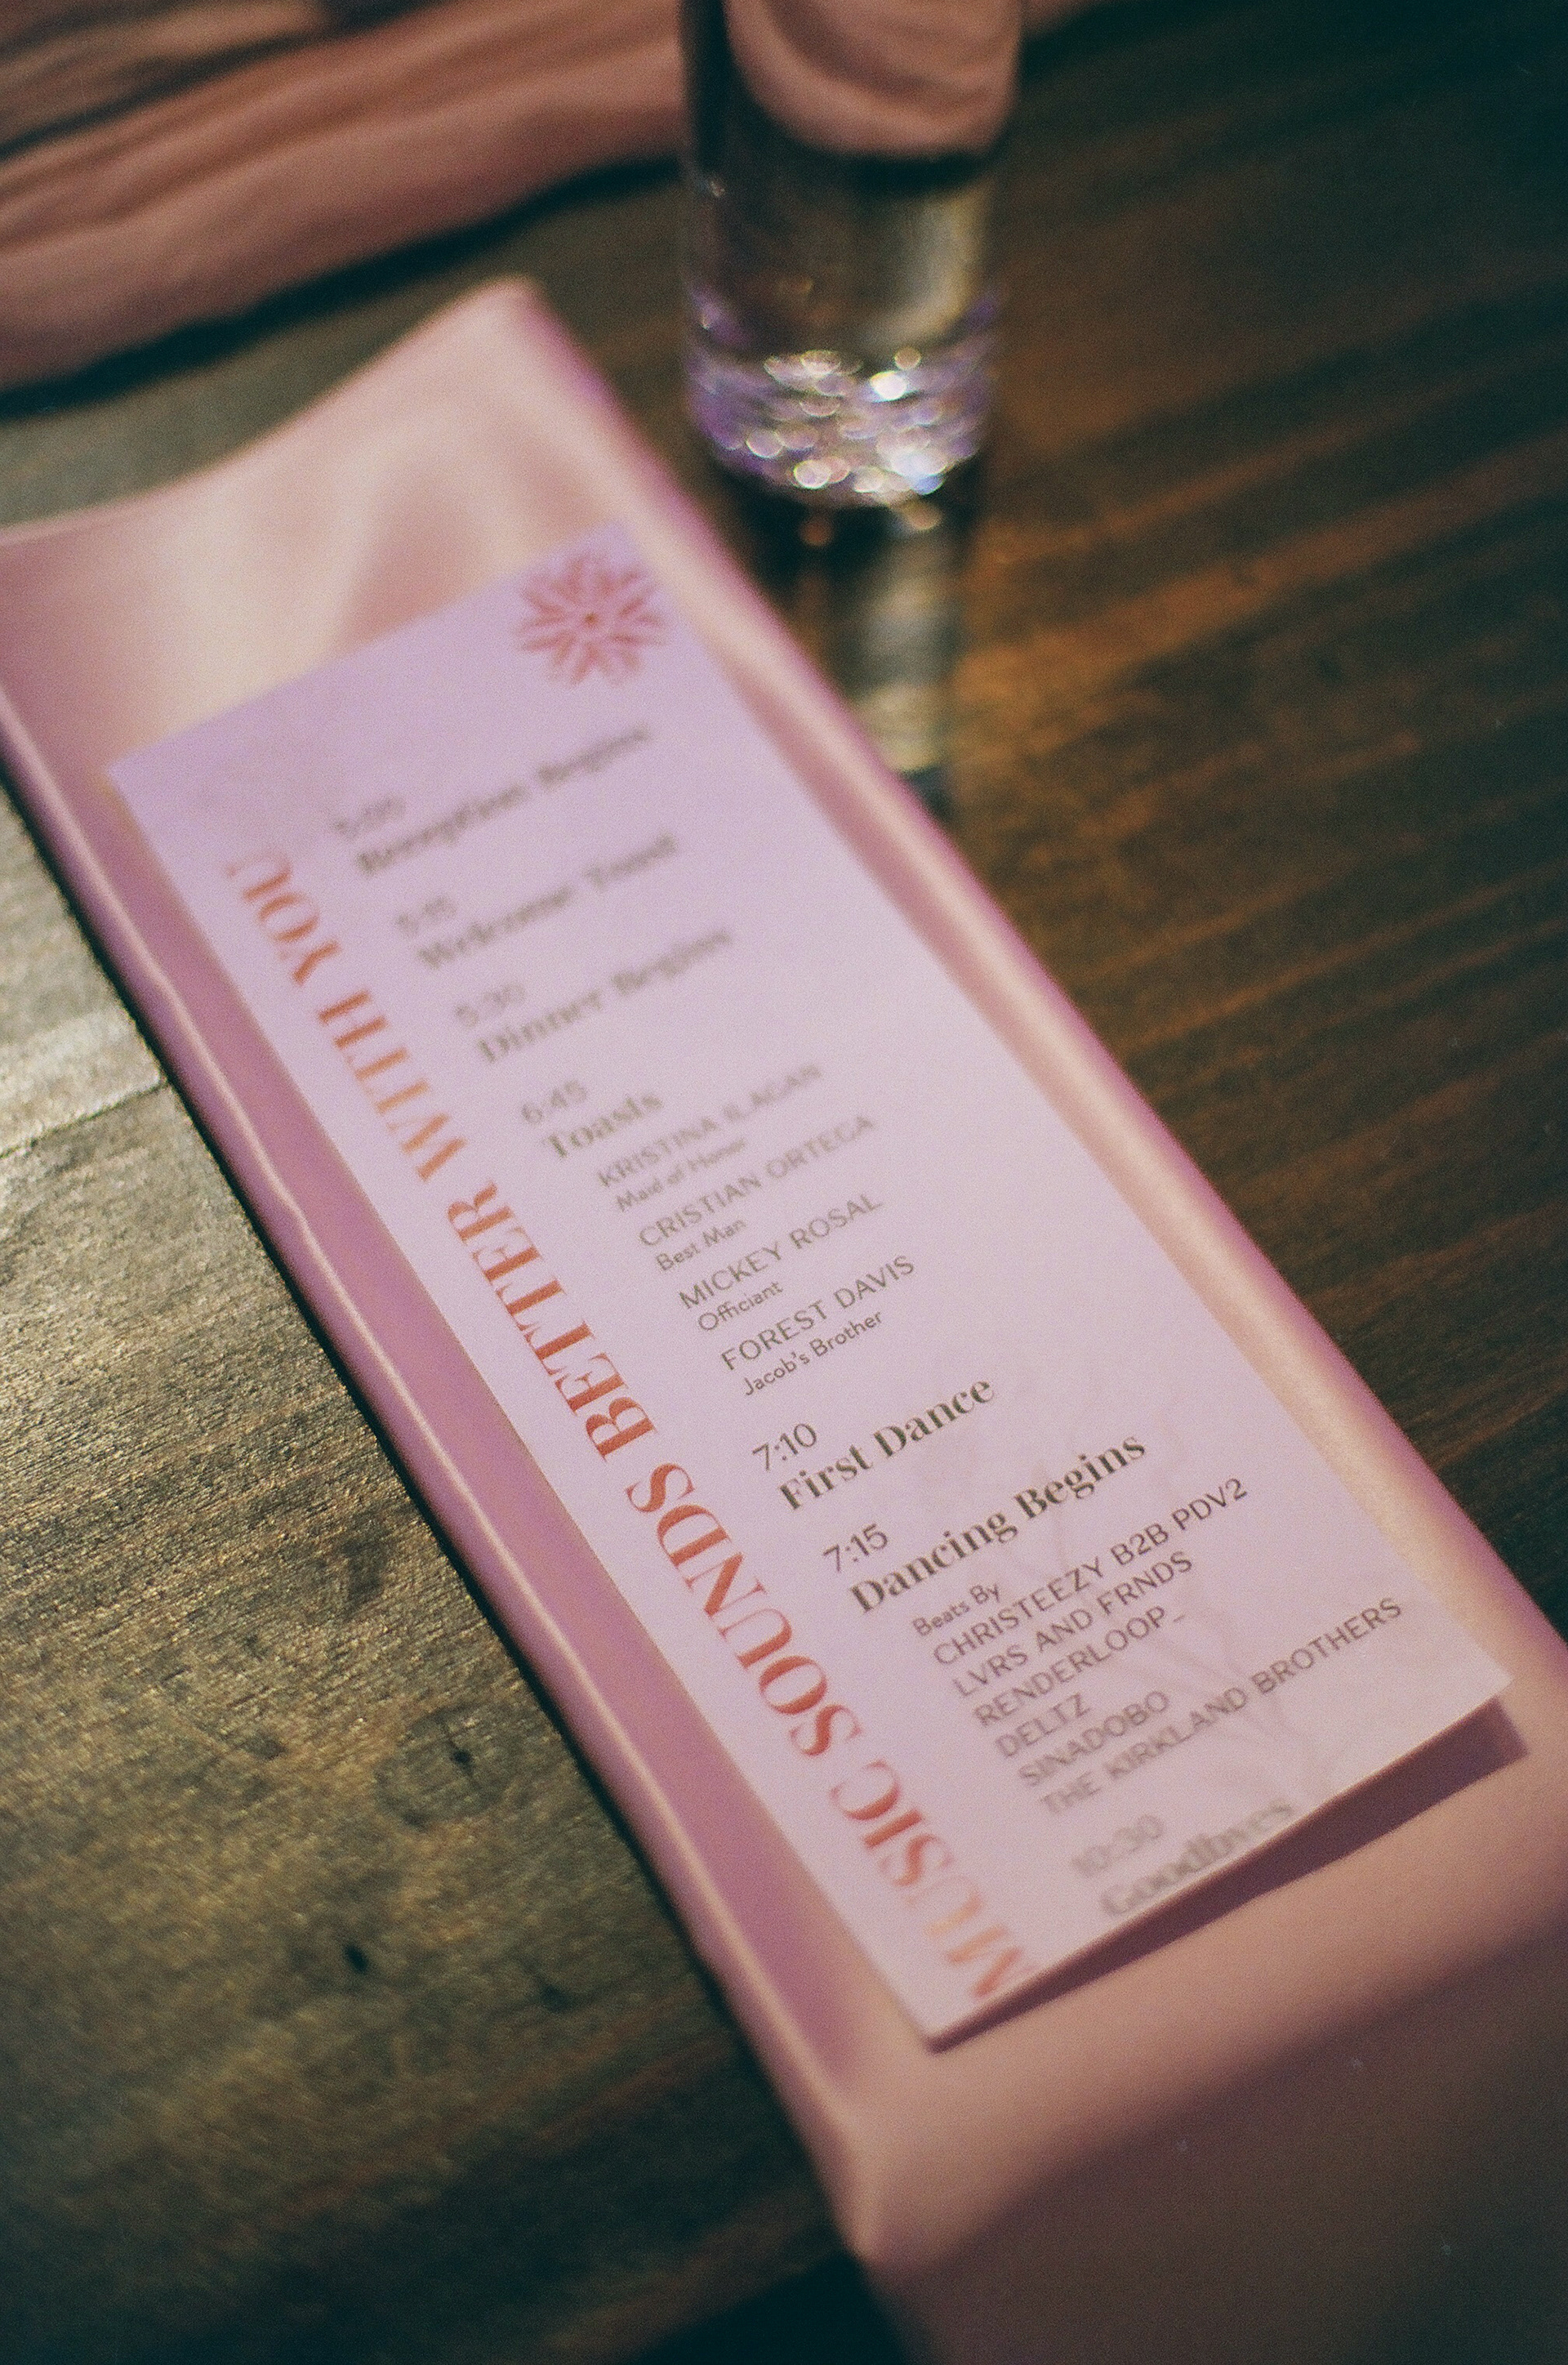 5:00
Reception Begins
5:15
Welcome Toast
5:30
Dinner Begins
6:45
Toasts
KRISTINA ILAGAN
Maid of Honor
CRISTIAN ORTEGA
Best Man
MICKEY ROSAL
Officiant
FOREST DAVIS
Jacob's Brother
7:10
First Dance
7:15
Dancing Begins
Beats By
CHRISTEEZY B2B PDV2
LVRS AND FRNDS
RENDERLOOP_
DELTZ
SINADOBO
THE KIRKLAND BROTHERS
10:30
Goodbyes
MUSIC SOUNDS BETTER WITH YOU